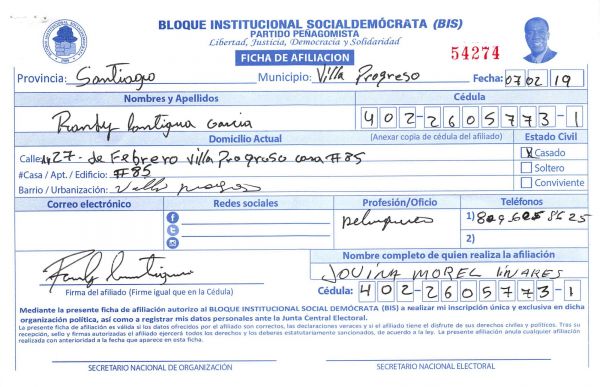 BLOQUE INSTITUCIONAL SOCIALDEMÓCRATA (BIS)
PARTIDO PEÑAGOMISTA
Libertad, Justicia, Democracia y Solidaridad
FICHA DE AFILIACION
54274
Provincia: Santiago Municipio: Villa Progreso Fecha: 07 02 19
Nombres y Apellidos Cédula
Randy Lantigua Garcia 402-2605773-1
Domicilio Actual (Anexar copia de cédula del afiliado) Estado Civil
Calle: 27 de Febrero Villa Progreso casa #85 X Casado
#Casa / Apt. / Edificio: #85 Soltero
Barrio / Urbanización: Villa progreso Conviviente
Correo electrónico Redes sociales Profesión/Oficio Teléfonos
peluquero 1) 809 605 8625
2)
Nombre completo de quien realiza la afiliación
JOVINA MOREL LINARES
Firma del afiliado (Firme igual que en la Cédula) Cédula: 402-2605773-1
Mediante la presente ficha de afiliación autorizo al BLOQUE INSTITUCIONAL SOCIAL DEMÓCRATA (BIS) a realizar mi inscripción única y exclusiva en dicha
organización política, así como a registrar mis datos personales ante la Junta Central Electoral.
La presente ficha de afiliación es válida si los datos ofrecidos por el afiliado son correctos, las declaraciones veraces y si el afiliado tiene el disfrute de sus derechos civiles y políticos. Tras su
recepción, sello y firmas autorizadas el afiliado ejercerá todos los derechos y los deberes estatutariamente sancionados, de acuerdo a la ley. La presente afiliación anula cualquier afiliación
realizada con anterioridad a la fecha que aparece en esta ficha.
SECRETARIO NACIONAL DE ORGANIZACIÓN SECRETARIO NACIONAL ELECTORAL